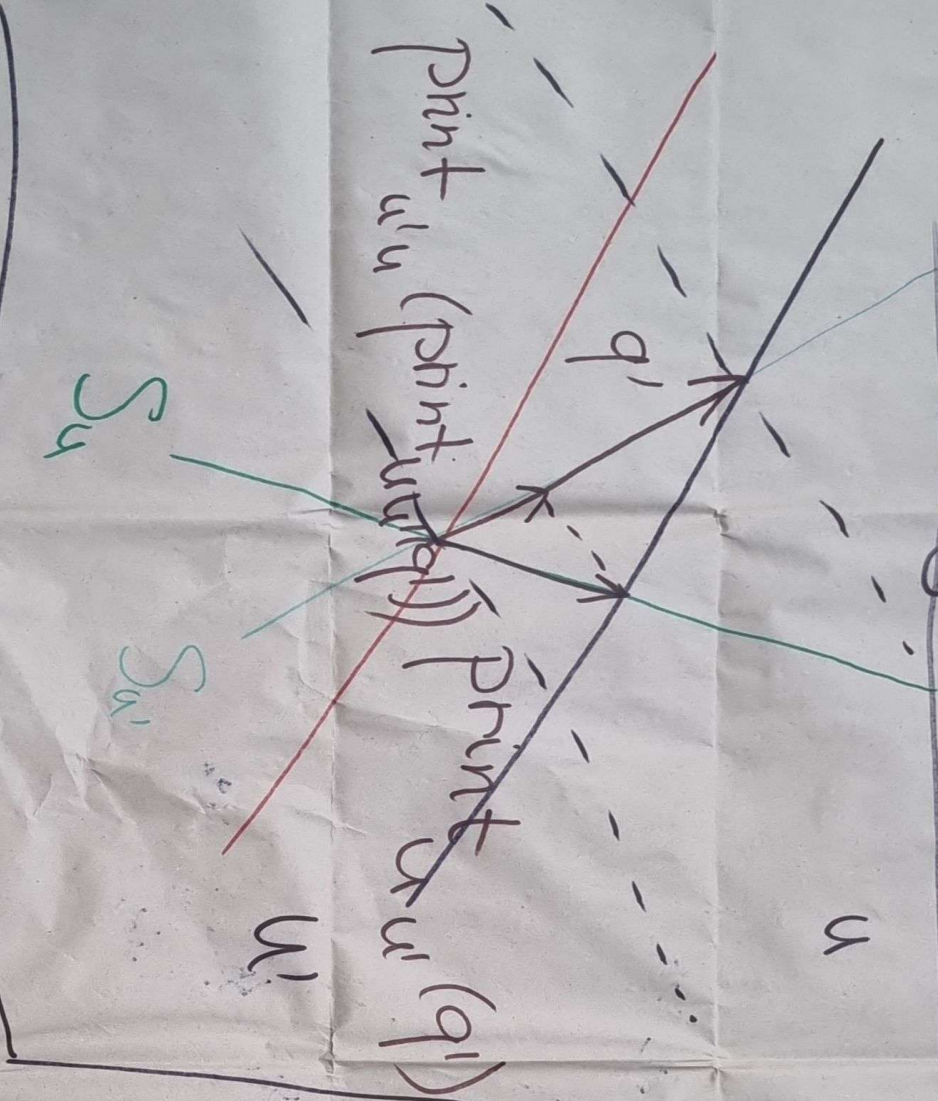 u
q'
print u'u (print uu' (q')) print u u' (q')
u'
Su
Su'